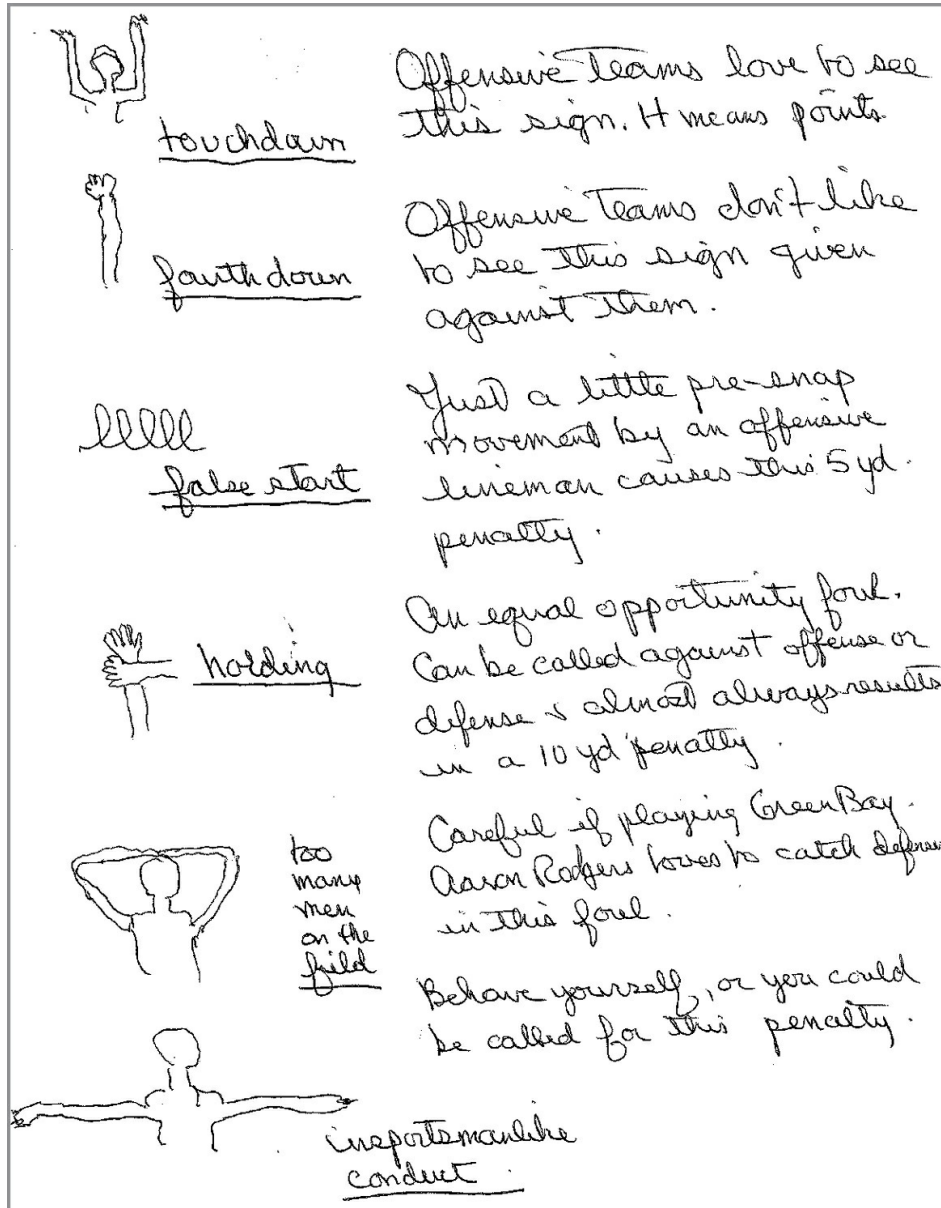 Offensive Teams love to see
this sign. It means points.
touchdown
Offensive Teams don't like
to see this sign given
against them.
fouth down
Just a little pre-snap
movement by an offensive
lineman causes this 5 yd.
penalty.
false start
An equal opportunity foul.
Can be called against offense or
defense & almost always results
in a 10 yd penalty.
holding
Careful if playing Green Bay.
Aaron Rodgers loves to catch defenses
in this foul.
too
many
men
on the
field
Behave yourself, or you could
be called for this penalty.
unsportsmanlike
conduct